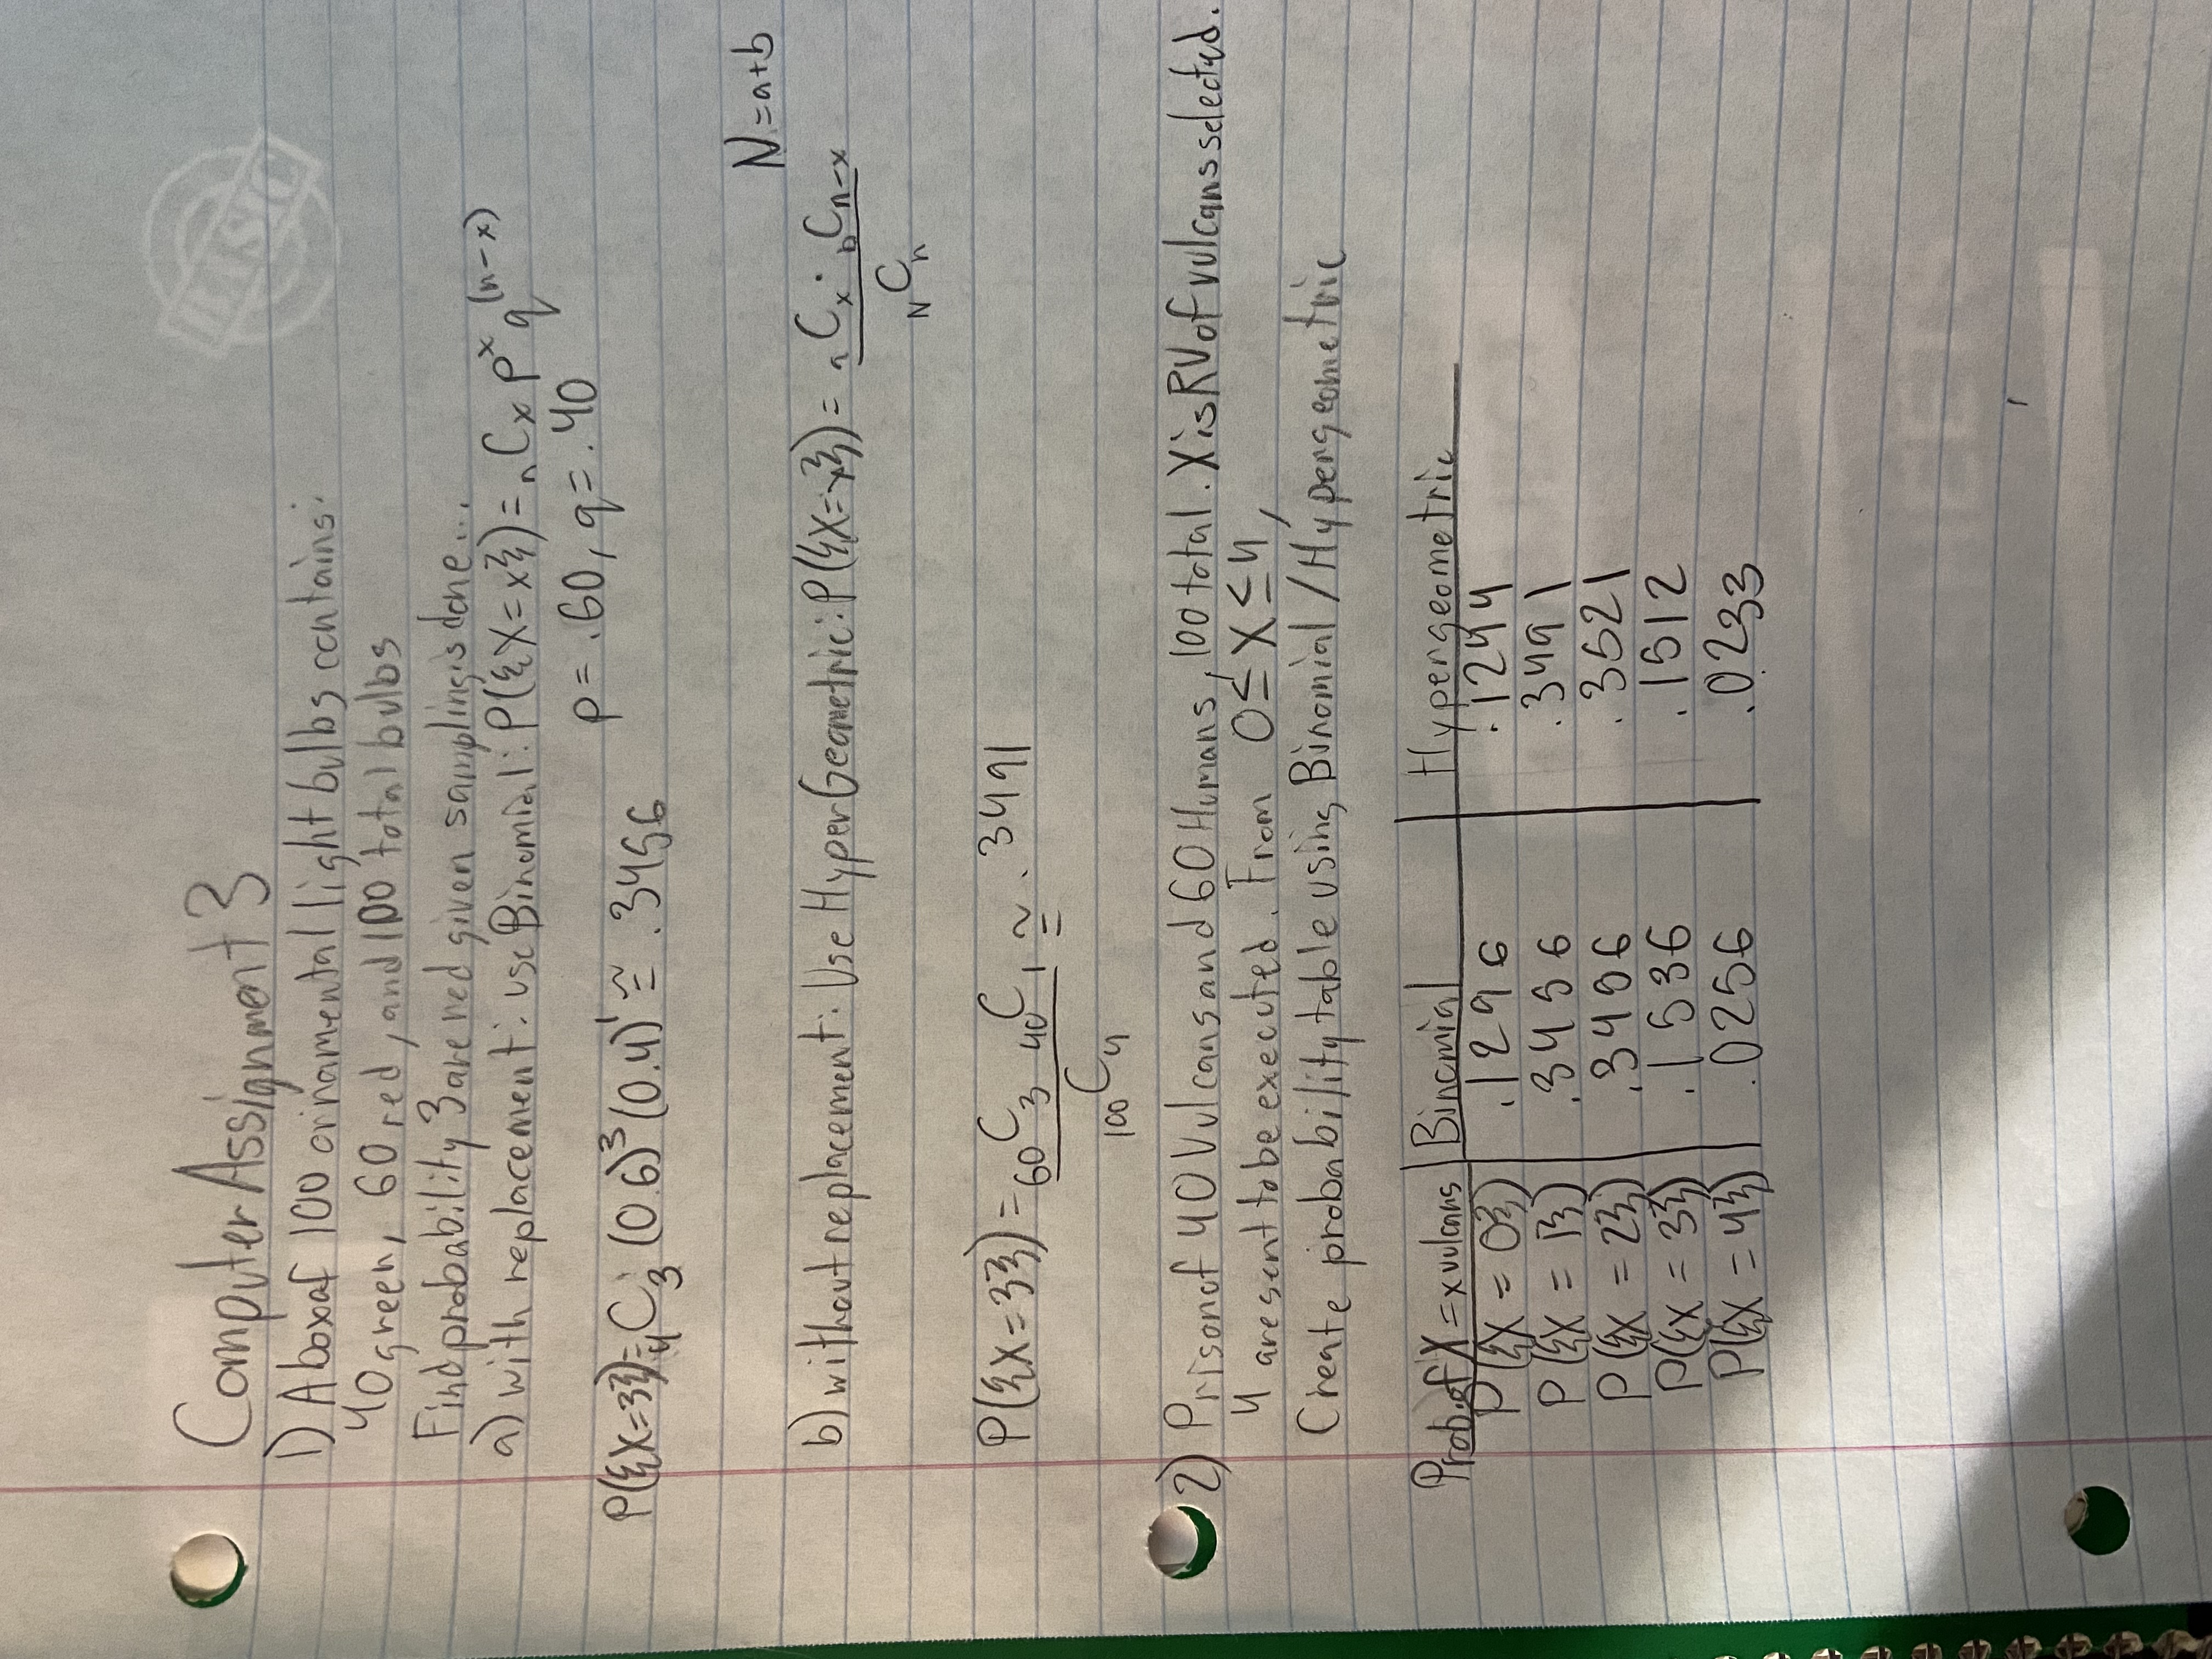 BASIC
Computer Assignment 3
1) A box of 100 ornamental light bulbs contains:
40 green, 60 red, and 100 total bulbs
Find probability 3 are red given sampling is done...
a) with replacement: use Binomial: P({X=x}) = nCx p^x q^(n-x)
p = .60, q = .40
P({X=3}) = 4C3 (0.6)^3 (0.4)^1 ≅ .3456
N = a+b
b) without replacement: Use HyperGeometric: P({X=x}) = aCx · bCn-x
NCn
P({X=3}) = 60C3 40C1 ≅ .3491
100C4
2) Prison of 40 Vulcans and 60 Humans, 100 total. X is RV of vulcans selected.
4 are sent to be executed. From 0 ≤ X ≤ 4,
Create probability table using Binomial / Hypergeometric
Prob. of X = x vulcans | Binomial | Hypergeometric
P({X = 0}) | .1296 | .1244
P({X = 1}) | .3456 | .3491
P({X = 2}) | .3456 | .3521
P({X = 3}) | .1536 | .1512
P({X = 4}) | .0256 | .0233